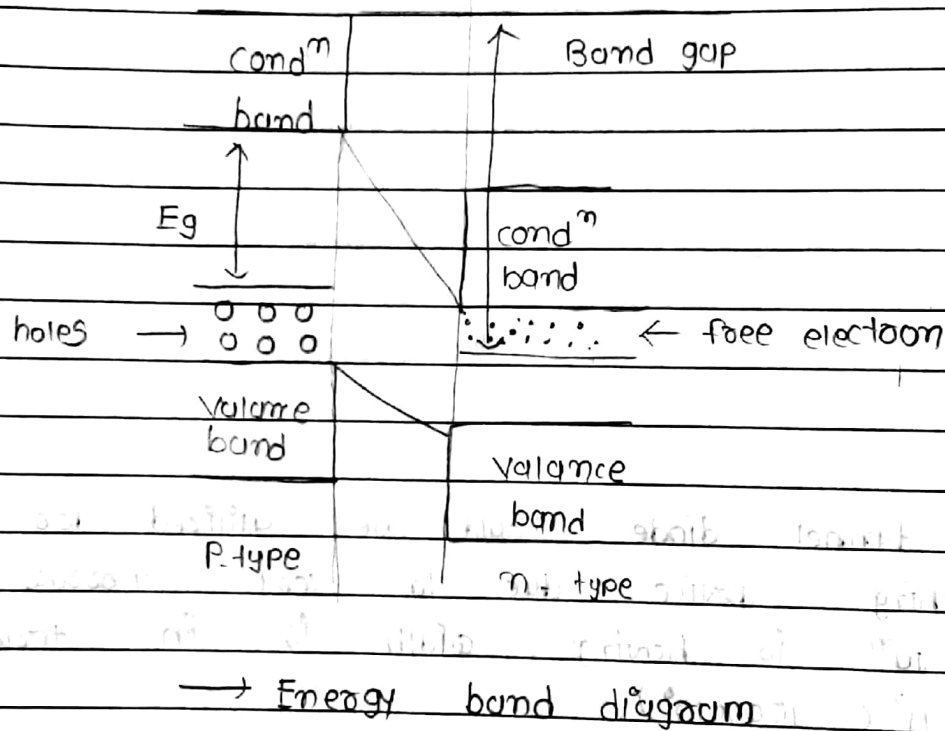 Condⁿ
band
Band gap
Eg
condⁿ
band
holes →
← free electroon
Valance
band
valance
band
P-type
n-type
→ Energy band diagram